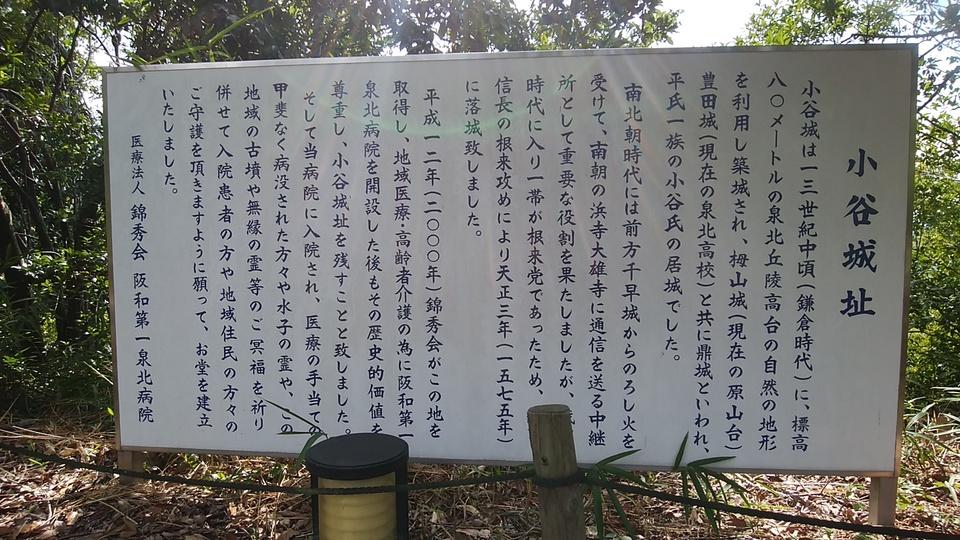 小谷城址
小谷城は一三世紀中頃(鎌倉時代)に、標高
八〇メートルの泉北丘陵高台の自然の地形
を利用し築城され、栂山城(現在の原山台)
豊田城(現在の泉北高校)と共に鼎城といわれ、
平氏一族の小谷氏の居城でした。
南北朝時代には前方千早城からのろし火を
受けて、南朝の浜寺大雄寺に通信を送る中継
所として重要な役割を果たしましたが、
時代に入り一帯が根来党であったため、
信長の根来攻めにより天正三年(一五七五年)
に落城致しました。
平成一二年(二〇〇〇年)錦秀会がこの地を
取得し、地域医療・高齢者介護の為に阪和第一
泉北病院を開設した後もその歴史的価値を
尊重し、小谷城址を残すことと致しました。
そして当病院に入院され、医療の手当ての
甲斐なく病没された方々や水子の霊や、この
地域の古墳や無縁の霊等のご冥福を祈り
併せて入院患者の方や地域住民の方々の
ご守護を頂きますように願って、お堂を建立
いたしました。
医療法人 錦秀会 阪和第一泉北病院